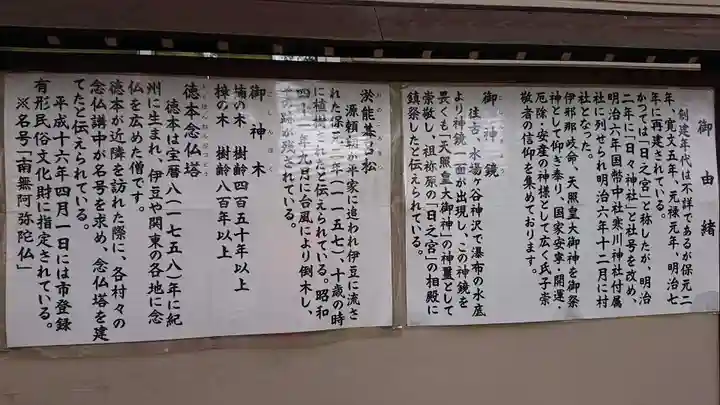 御由緒
創建年代は不詳であるが保元二
年、寛文五年、元禄元年、明治七
年に再建されている。
かつては「日之宮」と称したが、明治
二年に「日々神社」と社号を改め、
明治六年国幣中社寒川神社付属
社に列せられ明治六年十二月に村
社となった。
伊邪那岐命、天照皇大御神を御祭
神として仰ぎ奉り、国家安寧・開運・
厄除・安産の神様として広く氏子崇
敬者の信仰を集めております。
御神鏡
往古、水場ヶ谷神沢で瀑布の水底
より神鏡一面が出現し、この神鏡を
畏くも「天照皇大御神」の神璽として
崇敬し、祖祢原の「日之宮」の相殿に
鎮祭したと伝えられている。
淤能碁呂松
源頼朝が平家に追われ伊豆に流さ
れた保元二年(一一五七)、十歳の時
に植樹されたと伝えられている。昭和
四十二年九月に台風により倒木し、
その跡が残されている。
御神木
ごしんぼく
楠の木 樹齢四百五十年以上
樟の木 樹齢八百年以上
徳本念仏塔
とくほんねんぶつとう
徳本は宝暦八(一七五八)年に紀
州に生まれ、伊豆や関東の各地に念
仏を広めた僧です。
徳本が近隣を訪れた際に、各村々の
念仏講中が名号を求め、念仏塔を建
てたと伝えられている。
平成十六年四月一日には市登録
有形民俗文化財に指定されている。
※名号「南無阿弥陀仏」